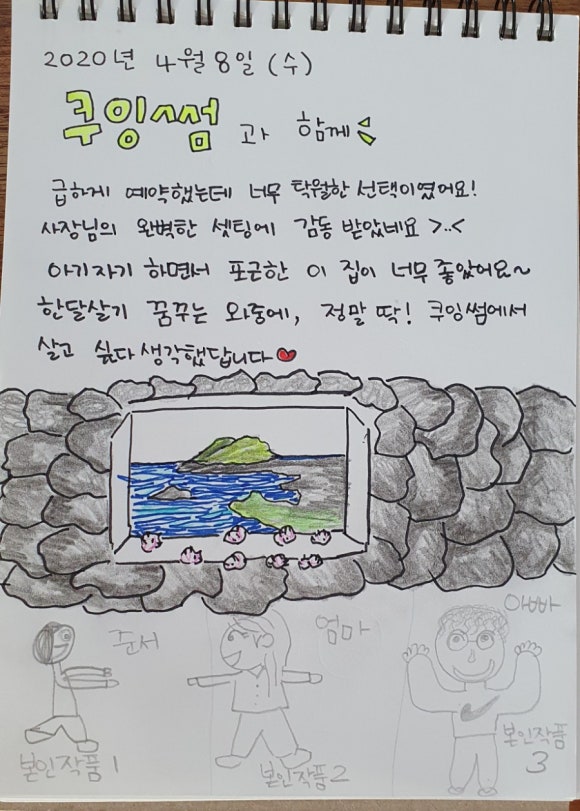 2020년 4월 8일 (수)
쿠잉썸과 함께
급하게 예약했는데 너무 탁월한 선택이였어요!
사장님의 완벽한 셋팅에 감동 받았네요 >..<
아기자기 하면서 포근한 이 집이 너무 좋았어요~
한달살기 꿈꾸는 와중에, 정말 딱! 쿠잉썸에서
살고 싶다 생각했답니다♥
준서
엄마
아빠
본인작품 1
본인작품 2
본인작품
3